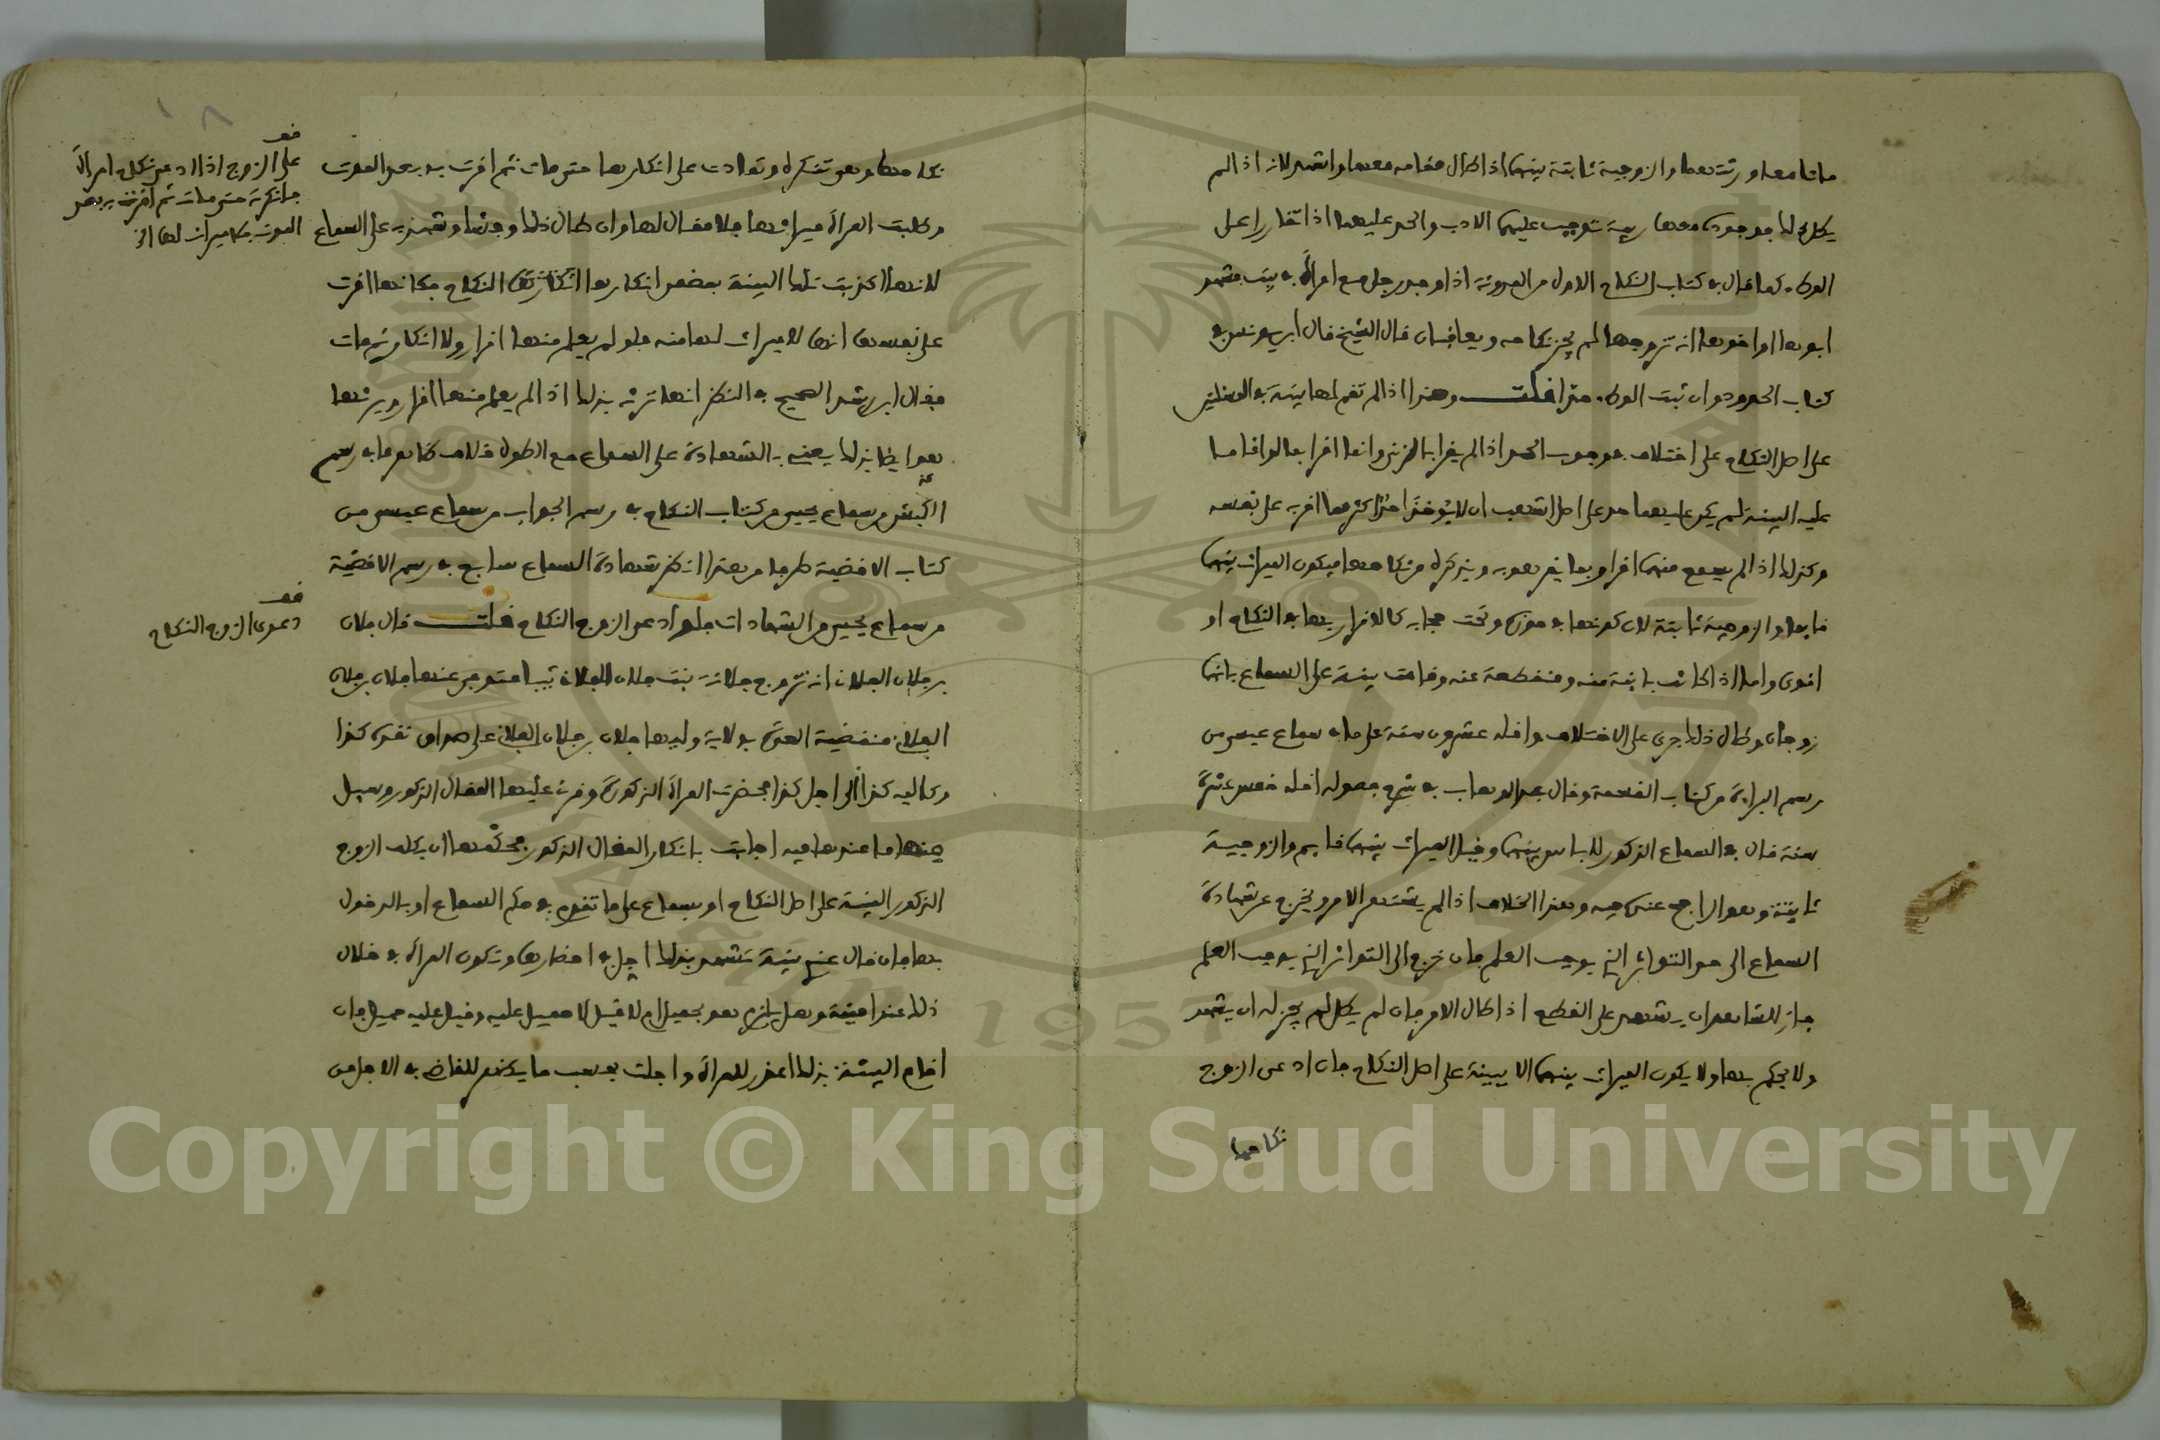 ماتا معا ورثت معها والزوجية ثابتة بينهما اذا طال مقامه معها واشهر لانه اذا لم
يطل ذلك بوجوده معها ريبة توجب عليهما الادب والحد عليهما اذا تقاررا على
الوطء كما قال في كتاب النكاح الاول من المدونة اذا وجد رجل مع امراة في بيت فشهد
ابوها او اخوها انه تزوجها لم يجز نكاحه ويعاقبان قال الشيخ قال ابن يونس في
كتاب الحدود وان ثبت الوطء حدا قلت وهذا اذا لم تقم لهما بينة
على اصل النكاح على اختلاف في وجوب الحد اذا لم يقرا بالزنى وانما اقرا بما لو اقاما
عليه البينة لم يكن عليهما حد على اصل اشهب ان لا يوخذ احد باكثر مما اقر به على نفسه
وكذلك اذا لم يسمع منهما اقرار بما يقر هو به ويذكره من نكاحها فيكون الميراث بينهما
قايما والزوجية ثابتة لان كونها في حوزه وتحت حجابه كالاقرار منها بالنكاح او
اقوى واما اذا كانت باينة منه ومنقطعة عنه وقامت بينة على السماع بانهما
زوجان وطال ذلك جرى على الاختلاف واقله عشرون سنة على ما في سماع عيسى من
رسم البراءة من كتاب القسمة وقال عبد الوهاب في شرح فصوله اقله خمس عشرة
سنة فان في السماع المذكور لا باس بينهما وقيل الميراث بينهما قايم والزوجية
ثابتة وهو الراجح عندي فيه وهذا الخلاف اذا لم يشتهر الامر ويخرج عن شهادة
السماع الى حد التواتر الذي يوجب العلم فان خرج الى التواتر الذي يوجب العلم
جاز للشاهد ان يشهد على القطع اذا طال الامر فان لم يطل لم يجز له ان يشهد
ولا يحكم بها ولا يكون الميراث بينهما الا ببينة على اصل النكاح فان ادعى الزوج
نكاحها
نكاحها وهي تنكره وتمادت على انكارها حتى مات ثم اقرت به بعد الموت
وطلبت المراة ميراثها فلا مقال لها وان طال ذلك وفشا وشهد به على السماع
لانها اكذبت تلك البينة بمضمن انكارها النكاح فكانها اقرت
على نفسها انها لا ميراث لها منه فلو لم يعلم منها اقرار ولا انكار ثم مات
فقال ابن رشد الصحيح في النظر انها ترثه بذلك اذا لم يعلم منها اقرار ويرثها
هو ايضا بذلك يعني بالشهادة على السماع مع الطول قلت ظاهر ما في رسم
الكبش من سماع يحيى من كتاب النكاح في رسم الجواب من سماع عيسى من
كتاب الاقضية طرفا من هذا انظر شهادة السماع سابع في رسم الاقضية
من سماع يحيى من الشهادات فلو ادعى الزوج النكاح قلت قال فلان
بن فلان الفلاني انه تزوج فلانة بنت فلان الفلاني ثيبا متوفى عنها فلان بن فلان
الفلاني منقضية العدة بولاية وليها فلان بن فلان الفلاني على صداق نقده كذا
وكاليه كذا الى اجل كذا فحضرت المراة المذكورة وقرئ عليها المقال المذكور وسيل
منها ما عندها فيه اجابت بانكار المقال المذكور فحكمها ان يكلف الزوج
المذكور البينة على اصل النكاح او سماع على ما تقدم في حكم السماع او بالدخول
بها فان قال عندي بينة تشهد بذلك اجل في احضارها وتكون المراة في خلال
ذلك عند امينة وهل يلزم هو بحميل ام لا قيل لا حميل عليه وقيل عليه حميل فان
اقام البينة بذلك اعذر للمراة واجلت بحسب ما يظهر للقاضي في الاجل من
قف
على الزوج اذا ادعى نكاح امراة
فانكرته حتى مات ثم اقرت به بعد
الموت فلا ميراث لها الخ
قف
دعوى الزوج النكاح
١٨
Copyright © King Saud University
1957